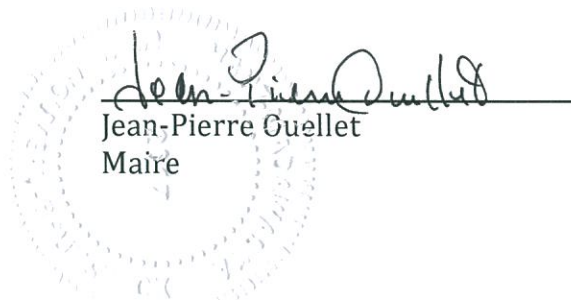 Jean-Pierre Ouellet
Jean-Pierre Ouellet
Maire